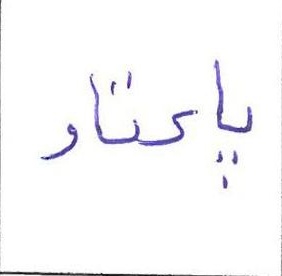 پاعتاو